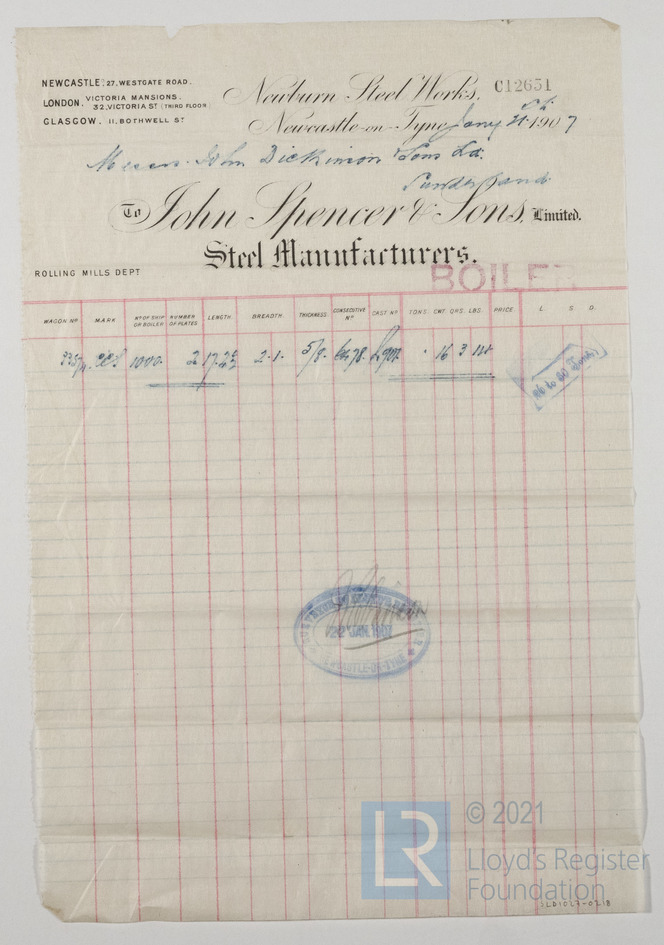 NEWCASTLE: 27, WESTGATE ROAD.
LONDON. VICTORIA MANSIONS. 32, VICTORIA ST (THIRD FLOOR)
GLASGOW. 11, BOTHWELL ST
Newburn Steel Works,
C12631
Newcastle-on-Tyne, Jany 1907
Messrs. John Dickinson & Sons Ld.
Sunderland
To John Spencer & Sons, Limited.
Steel Manufacturers.
ROLLING MILLS DEPT
BOILER
WAGON No MARK No OF SHIP OR BOILER NUMBER OF PLATES. LENGTH. BREADTH. THICKNESS. CONSECUTIVE No CAST No TONS. CWT. QRS. LBS. PRICE. L. S. D.
1000. 2 2.1. 5/8. 16 3
26 to 30 Tons
22 JAN. 1907
NEWCASTLE-ON-TYNE
LR
© 2021
Lloyd's Register
Foundation
SLD1027-0218